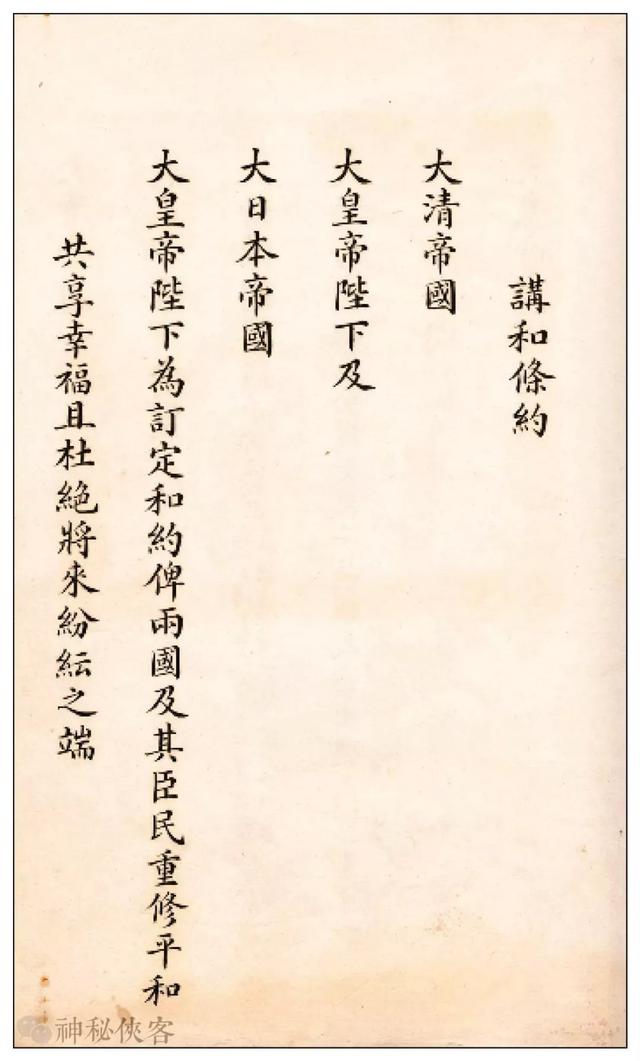 講和條約
大清帝國
大皇帝陛下及
大日本帝國
大皇帝陛下為訂定和約俾兩國及其臣民重修平和
共享幸福且杜絕將來紛紜之端
神秘俠客